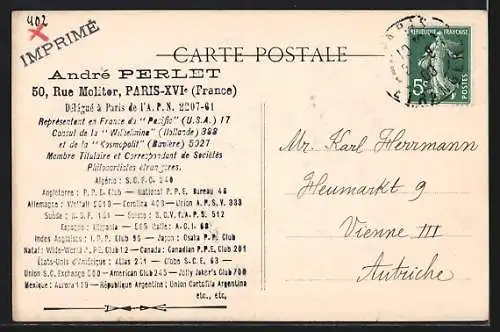 402
IMPRIMÉ
CARTE POSTALE
RÉPUBLIQUE FRANÇAISE
5c
POSTES
André PERLET
50, Rue Molitor, PARIS-XVIe (France)
Délégué à Paris de l'A.P.N. 2207-61
Représentant en France du "Pacific" (U.S.A.) 17
Consul de la "Wilhelmina" (Hollande) 399
et de la "Kosmopolit" (Bavière) 5027
Membre Titulaire et Correspondant de Sociétés
Philocartistes étrangères.
Algérie : S.C.F.C. 240
Angleterre : P.P.E. Club - National P.P.E. Bureau 46
Allemagne : Weltall - Carolina 403 - Union A.P.S.V. 333
Suède : - Suisse : S.C.V.f.A.P.S. 512
Espagne : Hispania - Italie: A.C.I.
Indes Anglaises : I.P.P. Club 95 - Japon : Osaka P.P. Club
Natal: Wilde-World P.P.E. Club 12 - Canada : Canadian P.P.E. Club 201
États-Unis d'Amérique : Atlas 251 - Globe S.C.E. 63 -
Union S.C. Exchange 500 - American Club 245 - Jolly Joker's Club 700
Mexique : Aurora - République Argentine : Union Cartofila Argentina
etc., etc,
Mr. Karl Herrmann
Heumarkt 9
Vienne III
Autriche